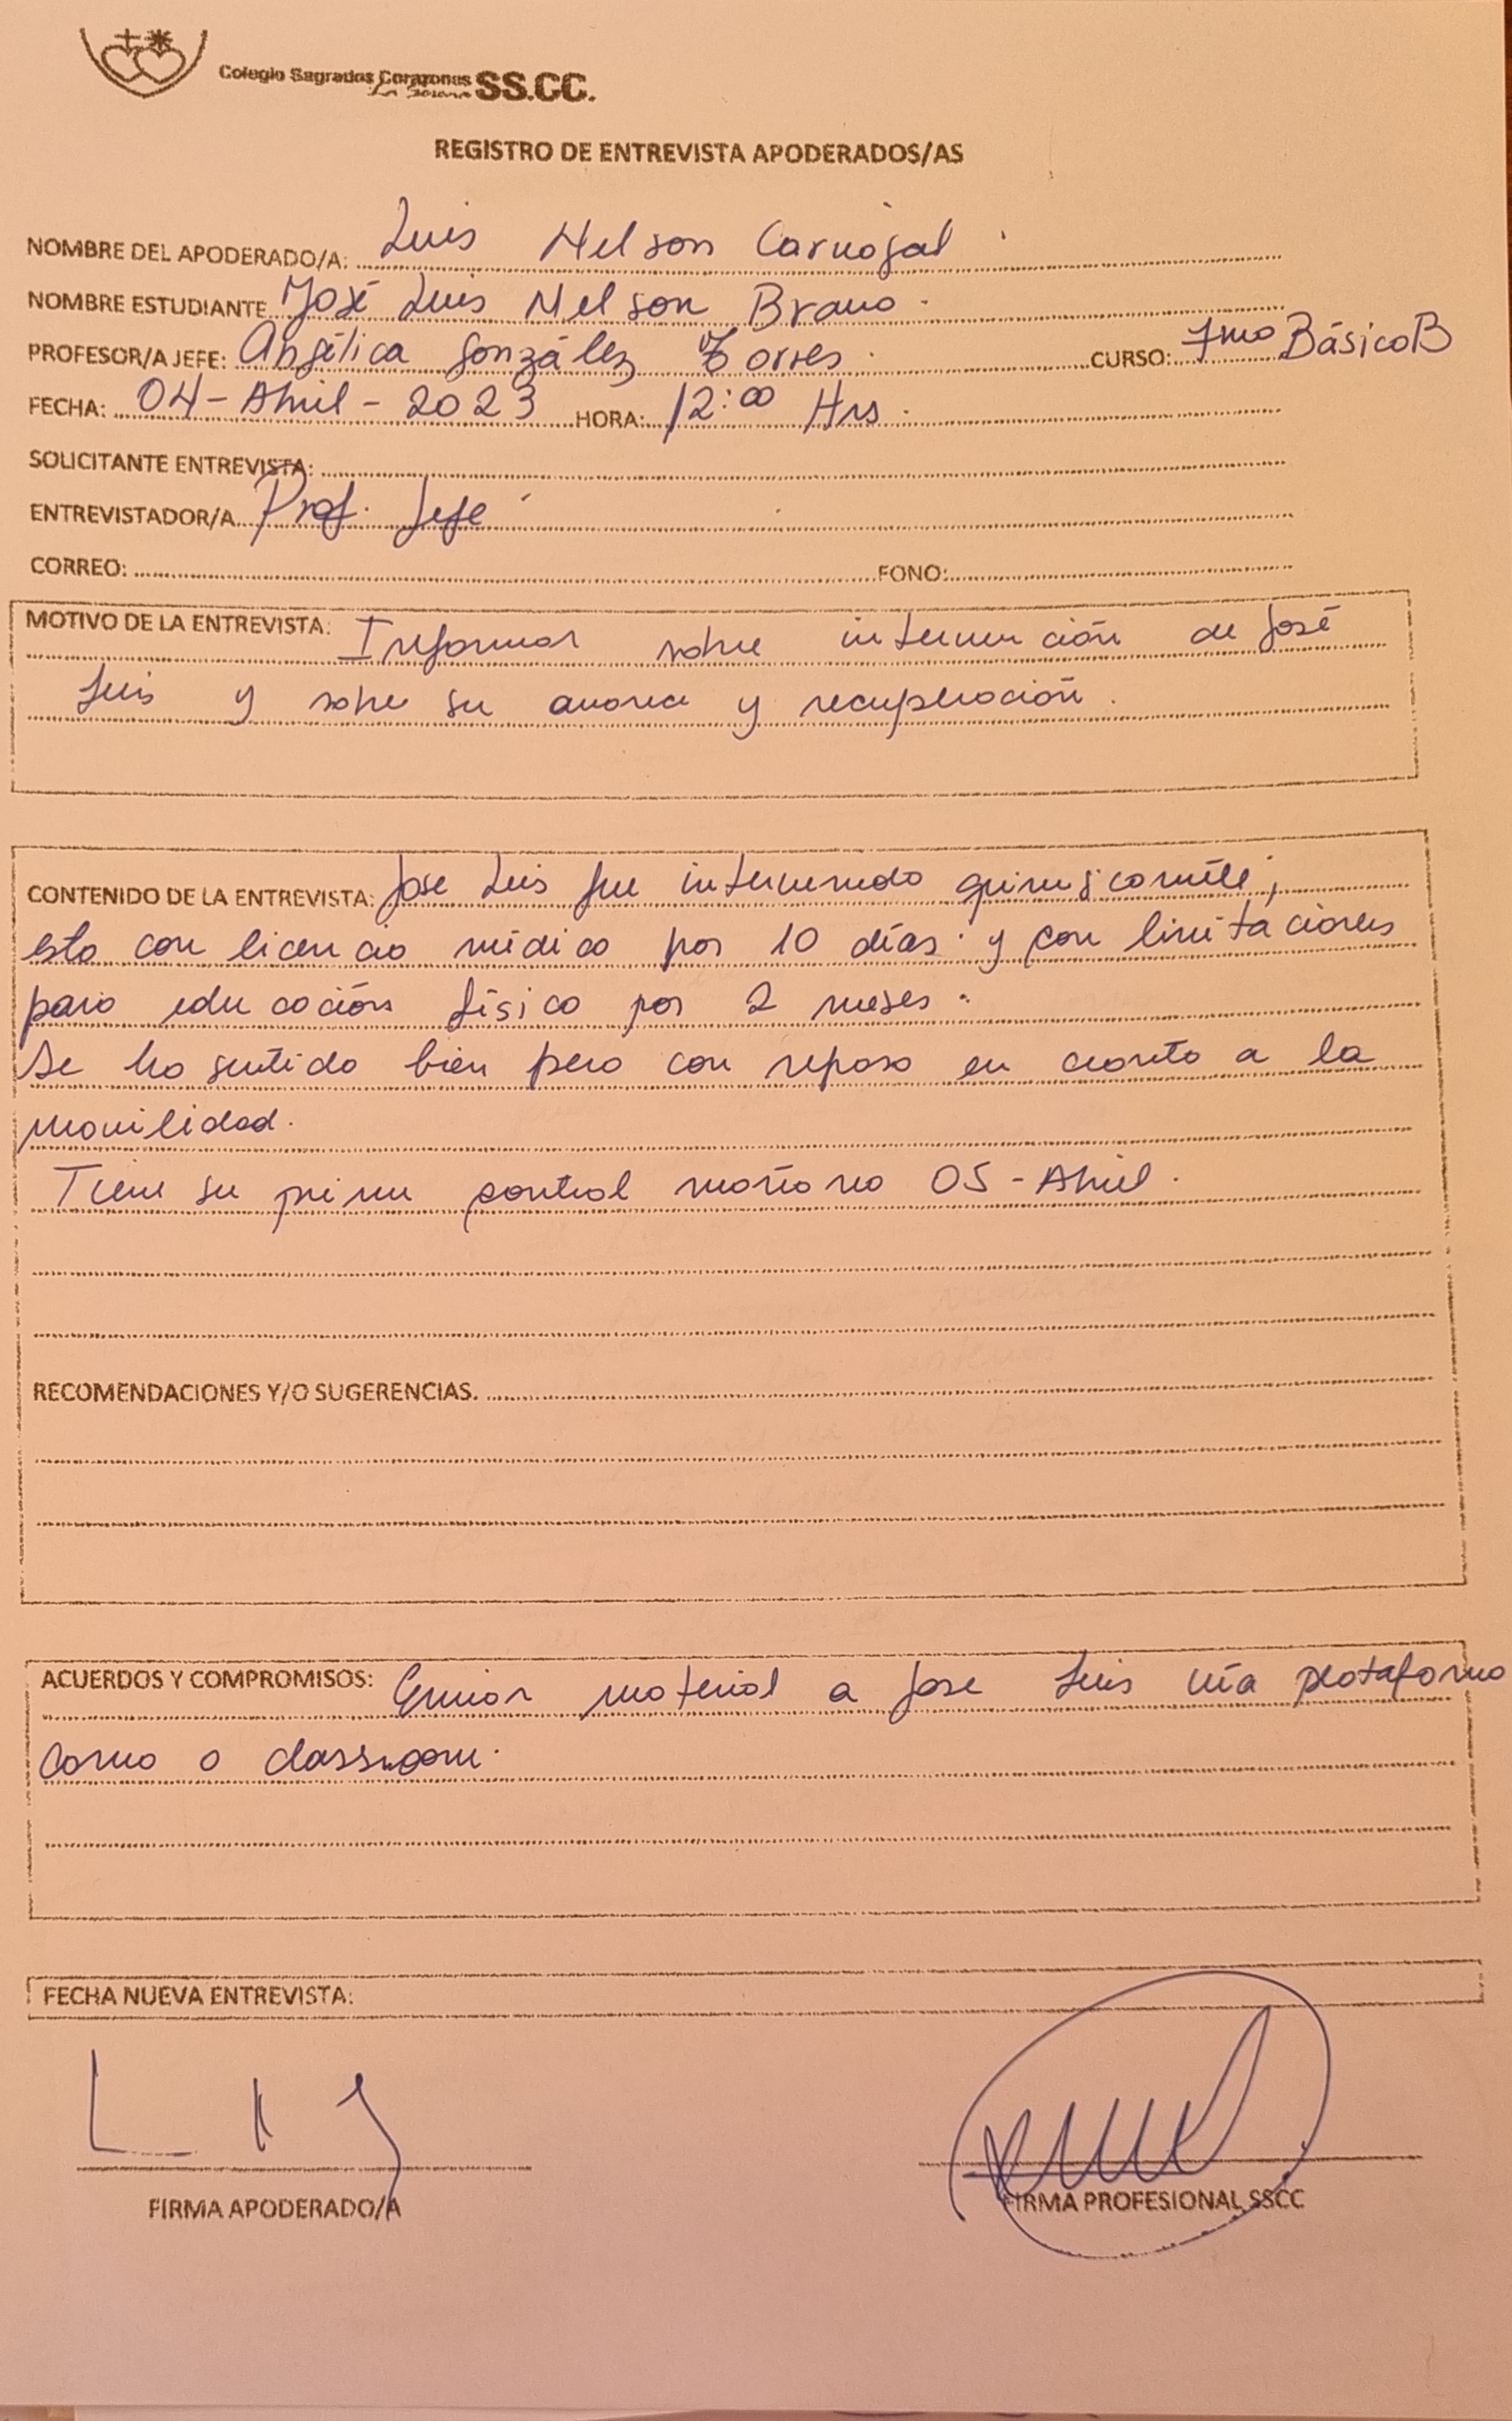 Colegio Sagrados Corazones SS.CC.
La Serena
REGISTRO DE ENTREVISTA APODERADOS/AS
NOMBRE DEL APODERADO/A: Luis Nelson Carvajal
NOMBRE ESTUDIANTE José Luis Nelson Bravo.
PROFESOR/A JEFE: Angélica González Torres. CURSO: 7mo Básico B
FECHA: 04-Abril-2023 HORA: 12:00 Hrs.
SOLICITANTE ENTREVISTA:
ENTREVISTADOR/A Prof. Jefe
CORREO: FONO:
MOTIVO DE LA ENTREVISTA: Informar sobre intervención de José
Luis y sobre su avance y recuperación.
CONTENIDO DE LA ENTREVISTA: Jose Luis fue intervenido
esta con licencia médica por 10 días y con limitaciones
para educación física por 2 meses.
Se ha sentido bien pero con reposo en cuanto a la
movilidad.
Tiene su primer control mañana 05-Abril.
RECOMENDACIONES Y/O SUGERENCIAS.
ACUERDOS Y COMPROMISOS: Enviar material a Jose Luis vía plataforma
como a classroom.
FECHA NUEVA ENTREVISTA:
FIRMA APODERADO/A
FIRMA PROFESIONAL SSCC